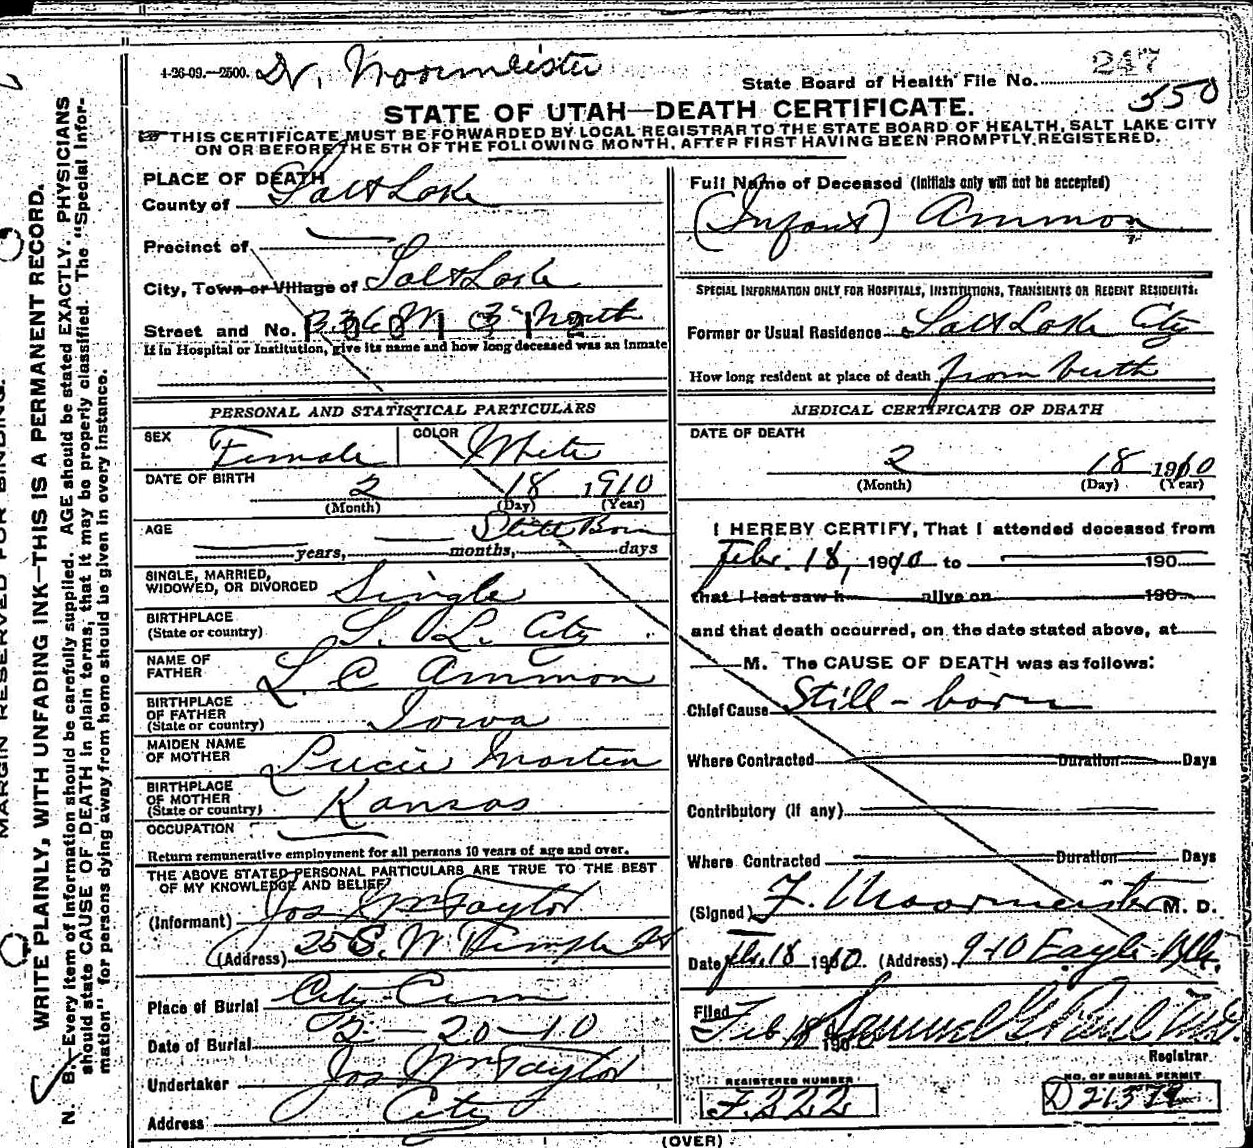 4-26-09.—2500. Dr. Moormeister
State Board of Health File No. 247
350
STATE OF UTAH—DEATH CERTIFICATE.
THIS CERTIFICATE MUST BE FORWARDED BY LOCAL REGISTRAR TO THE STATE BOARD OF HEALTH, SALT LAKE CITY
ON OR BEFORE THE 5TH OF THE FOLLOWING MONTH, AFTER FIRST HAVING BEEN PROMPTLY REGISTERED.
MARGIN RESERVED FOR BINDING.
WRITE PLAINLY, WITH UNFADING INK—THIS IS A PERMANENT RECORD.
N. B.—Every item of information should be carefully supplied. AGE should be stated EXACTLY. PHYSICIANS
should state CAUSE OF DEATH in plain terms, that it may be properly classified. The "Special Infor-
mation" for persons dying away from home should be given in every instance.
PLACE OF DEATH
County of Salt Lake
Precinct of
City, Town or Village of Salt Lake
Street and No. 336 W 3rd North
If in Hospital or Institution, give its name and how long deceased was an inmate
PERSONAL AND STATISTICAL PARTICULARS
SEX Female COLOR White
DATE OF BIRTH 2 18 1910
(Month) (Day) (Year)
AGE Still Born
years, months, days
SINGLE, MARRIED,
WIDOWED, OR DIVORCED Single
BIRTHPLACE
(State or country) S. L. City
NAME OF
FATHER L. C Ammon
BIRTHPLACE
OF FATHER
(State or country) Iowa
MAIDEN NAME
OF MOTHER Lucie Morten
BIRTHPLACE
OF MOTHER
(State or country) Kansas
OCCUPATION
Return remunerative employment for all persons 10 years of age and over.
THE ABOVE STATED PERSONAL PARTICULARS ARE TRUE TO THE BEST
OF MY KNOWLEDGE AND BELIEF
(Informant) Jos Wm Taylor
(Address) 25 S. W Temple St
Place of Burial City Cem
Date of Burial 2-20-10
Undertaker Jos Wm Taylor
Address City
Full Name of Deceased (Initials only will not be accepted)
(Infant) Ammon
SPECIAL INFORMATION ONLY FOR HOSPITALS, INSTITUTIONS, TRANSIENTS OR RECENT RESIDENTS.
Former or Usual Residence Salt Lake City
How long resident at place of death from birth
MEDICAL CERTIFICATE OF DEATH
DATE OF DEATH
2 18 1910
(Month) (Day) (Year)
I HEREBY CERTIFY, That I attended deceased from
Febr. 18, 1910 to 190
that I last saw h alive on 190
and that death occurred, on the date stated above, at
M. The CAUSE OF DEATH was as follows:
Chief Cause Still-born
Where Contracted Duration Days
Contributory (if any)
Where Contracted Duration Days
(Signed) F. Moormeister M. D.
Date Feb. 18 1910 (Address) 9-10 Eagle Blk.
Filed
Feb 18 190 Samuel G. Paul M.D.
Registrar
REGISTERED NUMBER
F.222
NO. OF BURIAL PERMIT
D 21372
(OVER)